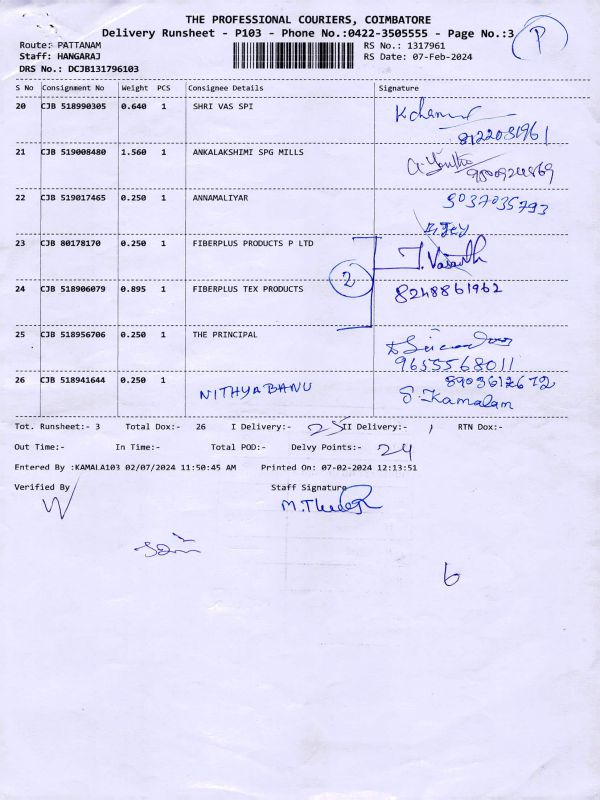 THE PROFESSIONAL COURIERS, COIMBATORE
Delivery Runsheet - P103 - Phone No.:0422-3505555 - Page No.:3
P
Route: PATTANAM RS No.: 1317961
Staff: HANGARAJ RS Date: 07-Feb-2024
DRS No.: DCJB131796103
S No Consignment No Weight PCS Consignee Details Signature
20 CJB 518990305 0.640 1 SHRI VAS SPI
8122081961
21 CJB 519008480 1.560 1 ANKALAKSHIMI SPG MILLS
22 CJB 519017465 0.250 1 ANNAMALIYAR
23 CJB 80178170 0.250 1 FIBERPLUS PRODUCTS P LTD
J. Vasanth
2
24 CJB 518906079 0.895 1 FIBERPLUS TEX PRODUCTS 8248861962
25 CJB 518956706 0.250 1 THE PRINCIPAL
9655568011
26 CJB 518941644 0.250 1 NITHYABANU
S. Kamalam
Tot. Runsheet:- 3 Total Dox:- 26 I Delivery:- 25 II Delivery:- 1 RTN Dox:-
Out Time:- In Time:- Total POD:- Delvy Points:- 24
Entered By :KAMALA103 02/07/2024 11:50:45 AM Printed On: 07-02-2024 12:13:51
Verified By Staff Signature
6